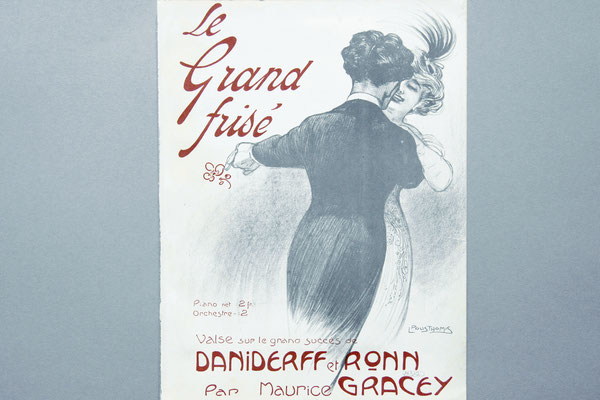 Le
Grand
frisé
Piano net (2 fr.)
Orchestre - 2
Valse sur le grand succès de
DANIDERFF et RONN
Par Maurice GRACEY